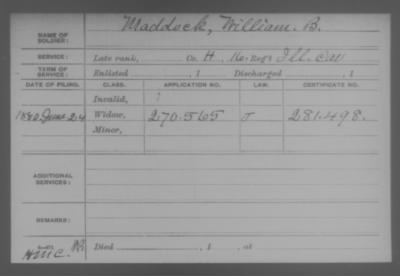 NAME OF SOLDIER: Maddock, William B.
SERVICE: Late rank, Co. H, Reg't Ill. Cav
TERM OF SERVICE: Enlisted , 1 Discharged , 1
DATE OF FILING. CLASS. APPLICATION NO. LAW. CERTIFICATE NO.
Invalid,
1880, June 24 Widow, 270.565 J 281.498.
Minor,
ADDITIONAL SERVICES:
REMARKS:
Died , 1 , at